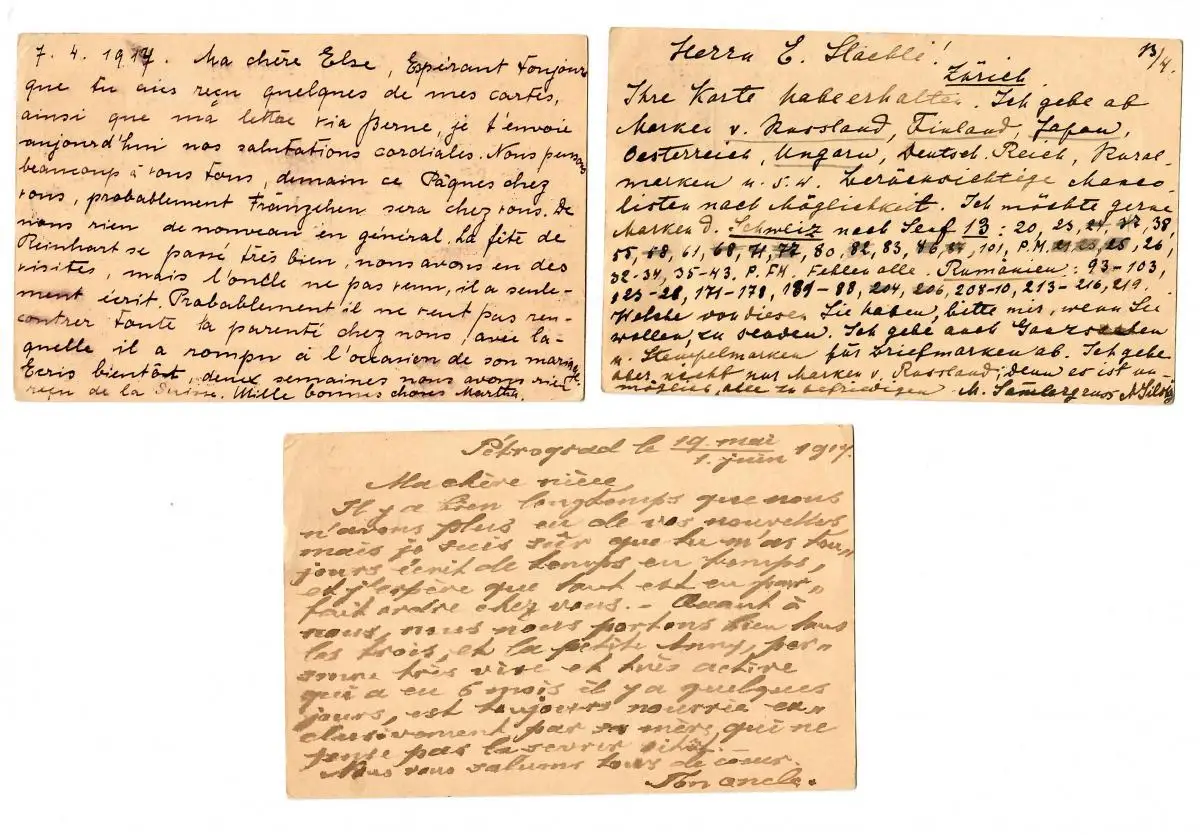 7. 4. 1917. Ma chère Else, Espérant toujours
que tu aies reçu quelques de mes cartes,
ainsi que ma lettre via Berne, je t'envoie
aujourd'hui nos salutations cordiales. Nous pensons
beaucoup à vous tous, demain ce Pâques chez
vous, probablement Franzchen sera chez vous. De
nous rien de nouveau en général. La fête de
Reinhart se passé très bien, nous avons eu des
visites, mais l'oncle ne pas venu, il a seule-
ment écrit. Probablement il ne veut pas ren-
contrer toute la parenté chez nous, avec la-
quelle il a rompu à l'occasion de son mariage.
Ecris bientôt, deux semaines nous avons rien
reçu de la Suisse. Mille bonnes choses Martha.
Herrn E. Staebli! 13/4.
Zürich
Ihre Karte habe erhalten. Ich gebe ab
Marken v. Russland, Finland, Japan,
Oesterreich, Ungarn, Deutsch. Reich, Rural-
marken u. s. w. Berücksichtige Manco-
listen nach Möglichkeit. Ich möchte gerne
Marken d. Schweiz nach Senf 13: 20, 23, 24, 38,
55, 61, 68, 71, 77, 80, 82, 83, 101, P.M. 25, 26,
32-34, 35-43. P. F.M. Fehlen alle. Rumänien: 93-103,
123-28, 171-178, 188, 204, 206, 208-10, 213-216, 219.
Welche von diesen Sie haben, bitte mir, wenn Sie
wollen, zu senden. Ich gebe auch Ganzsachen
u. Stempelmarken für Briefmarken ab. Ich gebe
aber nicht nur Marken v. Russland, denn es ist un-
möglich, alle zu befriedigen. M.
Pétrograd le 19. mai / 1. juin 1917.
Ma chère nièce,
Il y a bien longtemps que nous
n'avons plus eu de vos nouvelles
mais je suis sûr que tu m'as tou-
jours écrit de temps en temps,
et j'espère que tout est en par-
fait ordre chez vous. – Quant à
nous, nous nous portons bien tous
les trois, et la petite Anny, per-
sonne très vive et très active
qui a eu 6 mois il y a quelques
jours, est toujours nourrie ex-
clusivement par sa mère, qui ne
pense pas la sevrer sitôt.
Nous vous saluons tous de cœur.
Ton oncle.